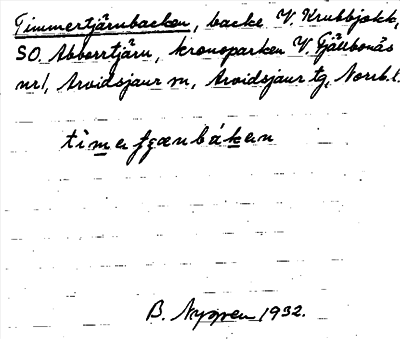 Timmertjärnbacken, backe V. Krubbjokk,
SO. Abborrtjärn, kronoparken V. Fjällbonäs
nr1, Arvidsjaur sn, Arvidsjaur tg, Norrb.l.
B. Nygren 1932.